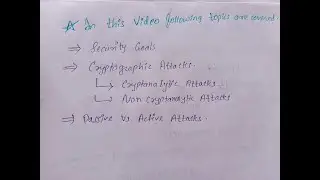 * In this Video following topics are covered.
⇒ Security Goals
⇒ Cryptographic Attacks.
↳ Cryptanalytic Attacks
↳ Non Cryptanalytic Attacks
⇒ Passive vs Active Attacks.